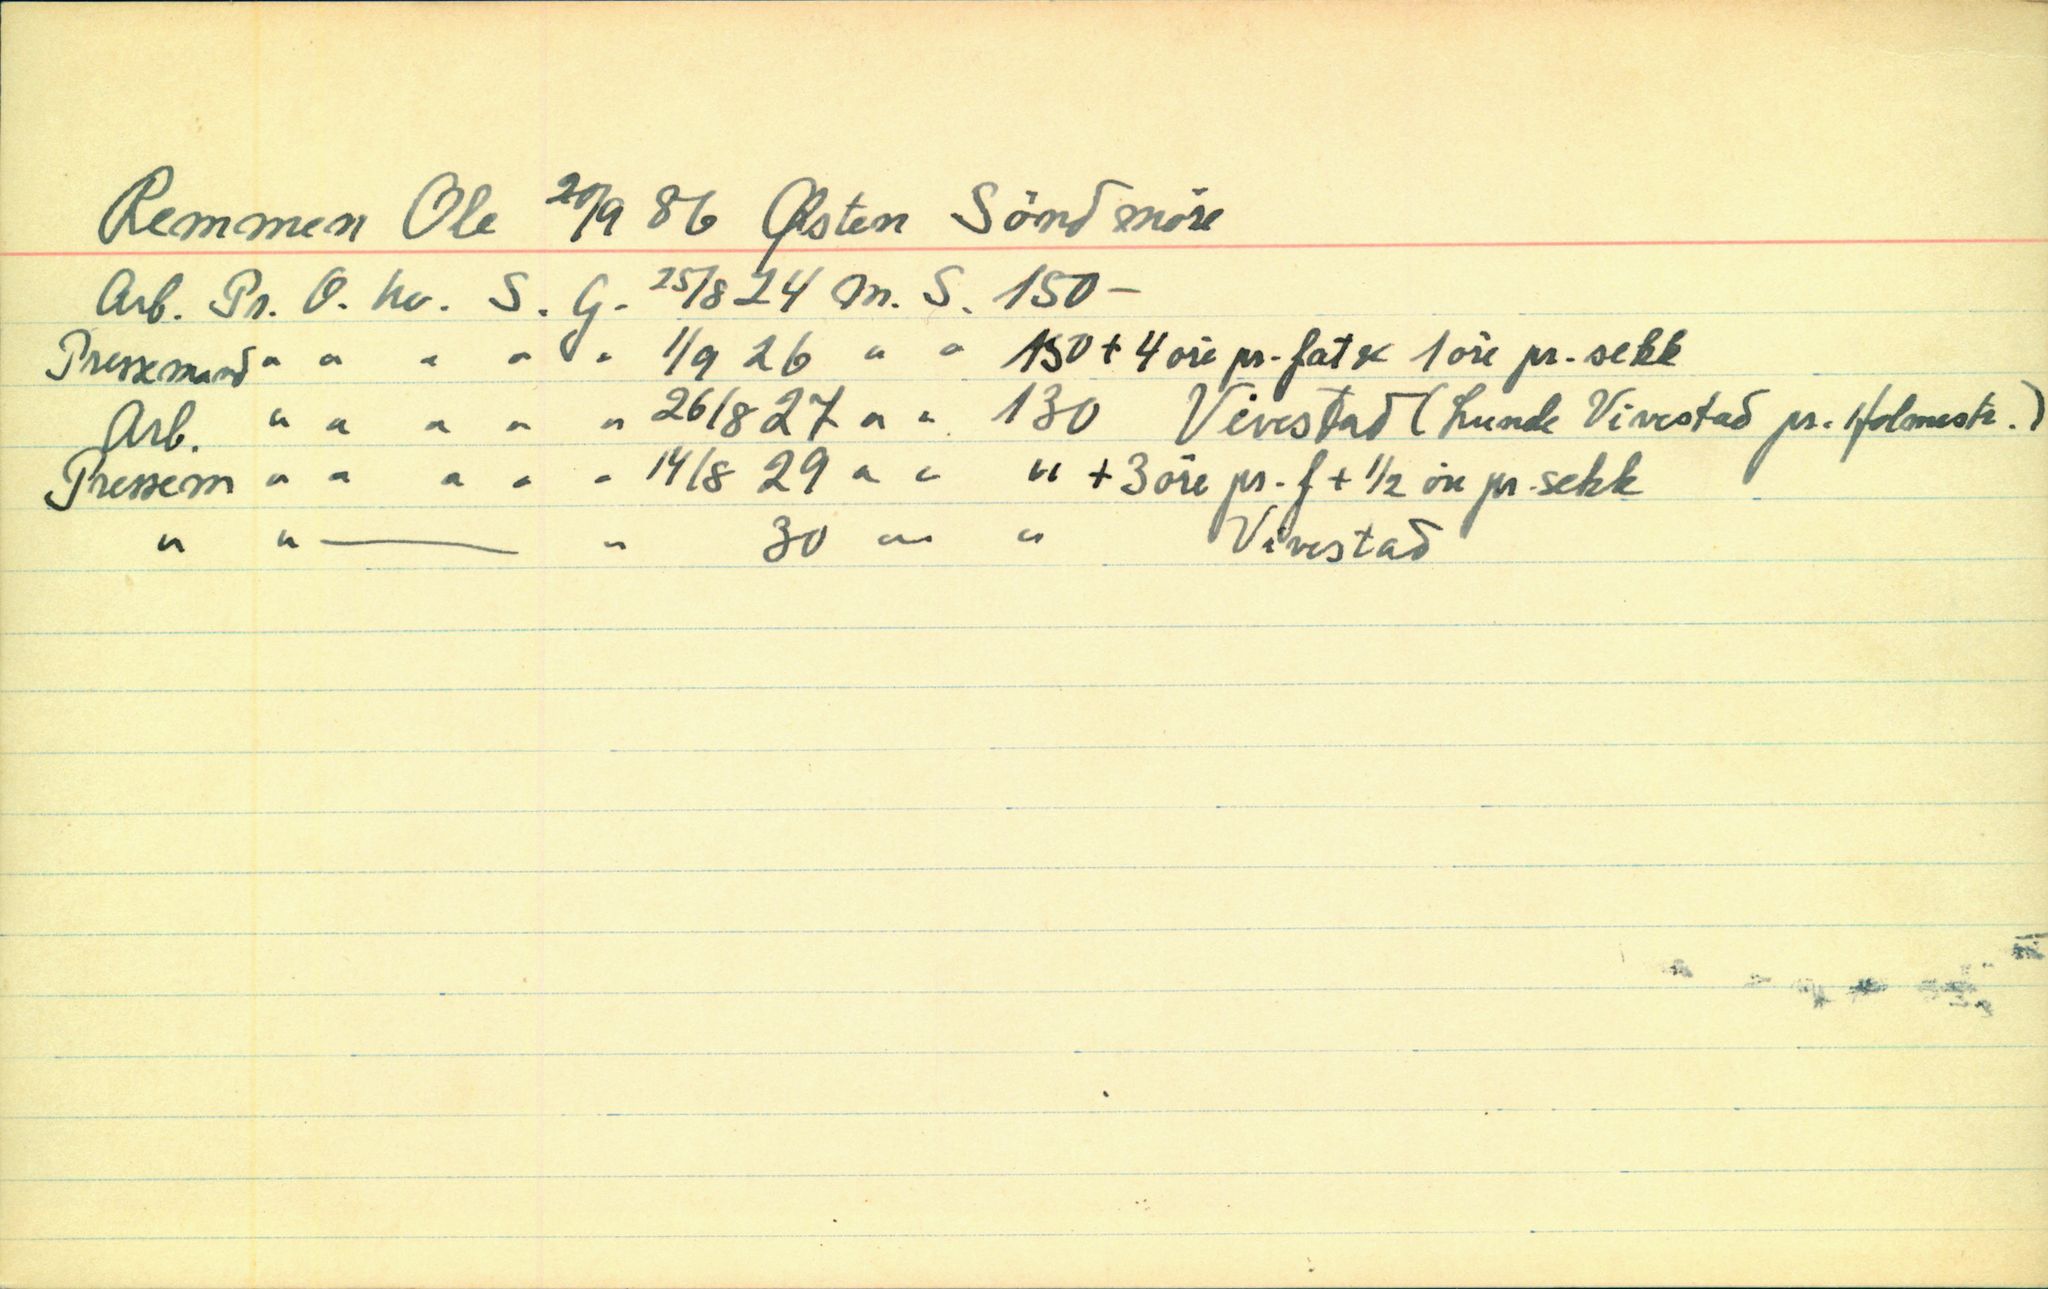 Remmen Ole 20/9 86 Ørsten Söndmöre
Arb. Pr. O. hv. S. G. 25/8 24 m. S. 150 -
Pressemand " " " " " 1/9 26 " " 150 + 4 öre pr. fat & 1 öre pr. sekk
Arb. " " " " " 26/8 27 " " 130 Vivestad (Lunde Vivestad pr. Holmestr.)
Pressem " " " " " 14/8 29 " " " + 3 öre pr. f + 1/2 öre pr. sekk
" " —— " 30 " " Vivestad